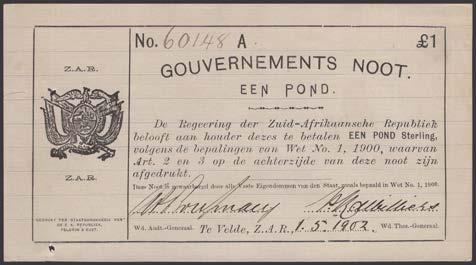 No. 60148 A.
£1
GOUVERNEMENTS NOOT.
EEN POND.
Z.A.R.
Z.A.R.
GEDRUKT TER STAATSDRUKKERIJ VAN
DE Z. A. REPUBLIEK,
PELGRIM'S RUST.
De Regeering der Zuid-Afrikaansche Republiek
belooft aan houder dezes te betalen EEN POND Sterling,
volgens de bepalingen van Wet No. 1, 1900, waarvan
Art. 2 en 3 op de achterzijde van deze noot zijn
afgedrukt.
Deze Noot is gewaarborgd door alle Vaste Eigendommen van den Staat, zooals bepaald in Wet No. 1, 1900.
Wd. Audt.-Generaal.
Te Velde, Z.A.R., 1.5.1902
Wd. Thes.-Generaal.